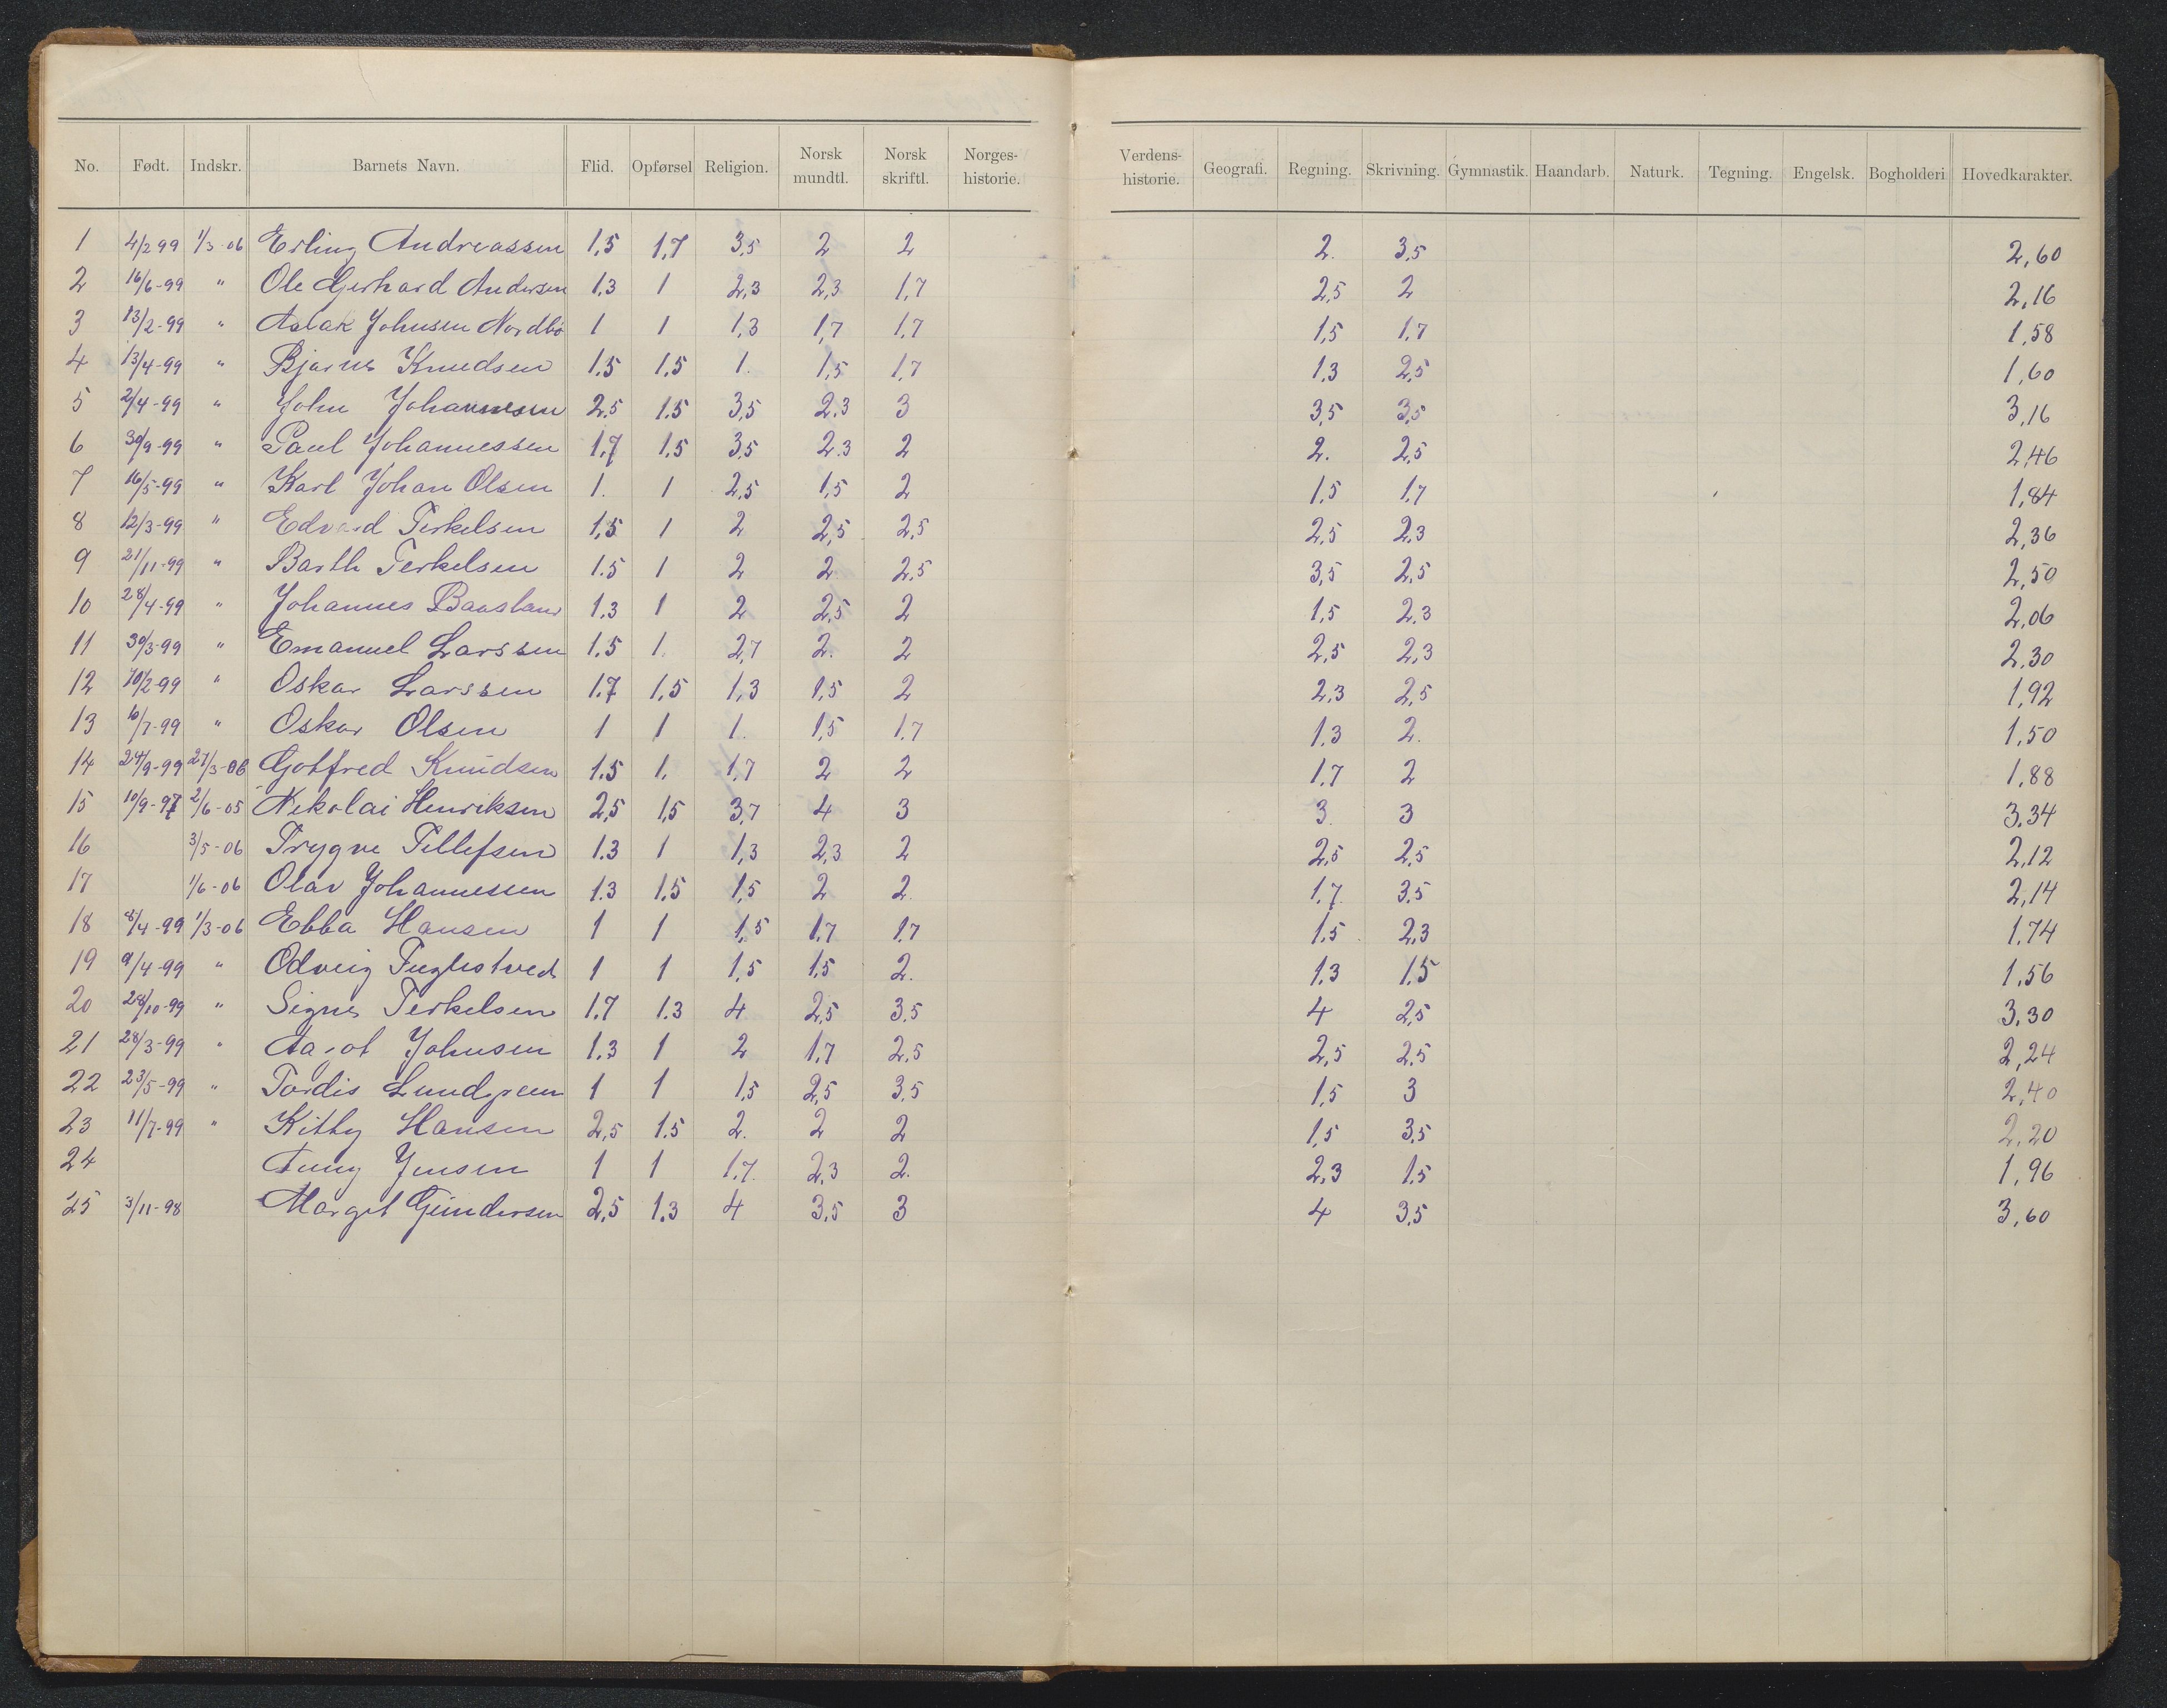 No. Født. Indskr. Barnets Navn. Flid. Opførsel Religion. Norsk mundtl. Norsk skriftl. Norges-historie. Verdens-historie. Geografi. Regning. Skrivning. Gymnastik. Haandarb. Naturk. Tegning. Engelsk. Bogholderi Hovedkarakter.
1 4/2 99 1/3-06 Erling Andreassen 1,5 1,7 3,5 2 2 2. 3,5 2,60
2 16/6-99 " Ole Gerhard Andersen 1,3 1 2,3 2,3 1,7 2,5 2 2,16
3 13/2-99 " Aslak Johnsen Nordbö 1 1 1,3 1,7 1,7 1,5 1,7 1,58
4 13/4-99 " Bjarne Knudsen 1.5 1.5 1. 1,5 1,7 1.3 2,5 1,60
5 2/4-99 " John Johannesen 2.5 1.5 3,5 2.3 3 3,5 3,5 3,16
6 30/9-99 " Paul Johannessen 1,7 1.5 3,5 2.3 2 2. 2,5 2,46
7 16/5-99 " Karl Johan Olsen 1. 1 2,5 1,5 2 1,5 1,7 1,84
8 12/3-99 " Edvard Terkelsen 1,5 1 2 2,5 2,5 2,5 2,3 2,36
9 21/11-99 " Barth Terkelsen 1.5 1 2 2 2,5 3,5 2,5 2,50
10 28/4-99 " Johannes Baasland 1.3 1 2 2,5 2 1,5 2,3 2,06
11 30/3-99 " Emanuel Larssen 1.5 1. 2,7 2. 2 2,5 2,3 2.30
12 10/2-99 " Oskar Larssen 1.7 1,5 1,3 1,5 2 2,3 2,5 1,92
13 10/7-99 " Oskar Olsen 1 1 1. 1,5 1.7 1.3 2. 1,50
14 24/9-99 27/3-06 Gotfred Knudsen 1.5 1. 1,7 2 2 1.7 2 1,88
15 10/9-97 2/6-05 Nikolai Henriksen 2,5 1,5 3,7 4 3 3 3 3.34
16 3/5-06 Trygve Tellefsen 1.3 1 1,3 2,3 2 2,5 2,5 2,12
17 1/6-06 Olav Johannessen 1.3 1.5 1,5 2 2. 1,7 3,5 2,14
18 8/4-99 1/3-06 Ebba Hansen 1 1 1,5 1.7 1.7 1.5 2,3 1,74
19 9/4-99 " Odveig Fuglestvedt 1 1 1,5 1,5 2. 1.3 1.5 1,56
20 28/10-99 " Signe Terkelsen 1.7 1.3 4 2,5 3.5 4 2,5 3,30
21 28/3-99 " Aagot Johnsen 1.3 1 2 1.7 2,5 2,5 2,5 2,24
22 23/5-99 " Tordis Lundgreen 1 1 1,5 2,5 3,5 1,5 3 2,40
23 11/7-99 " Kitty Hansen 2,5 1.5 2. 2 2 1,5 3,5 2,20
24 Jensen 1 1 1.7. 2,3 2. 2,3 1.5 1,96
25 3/11-98 Margit Gundersen 2,5 1.3 4 3,5 3 4 3,5 3,60